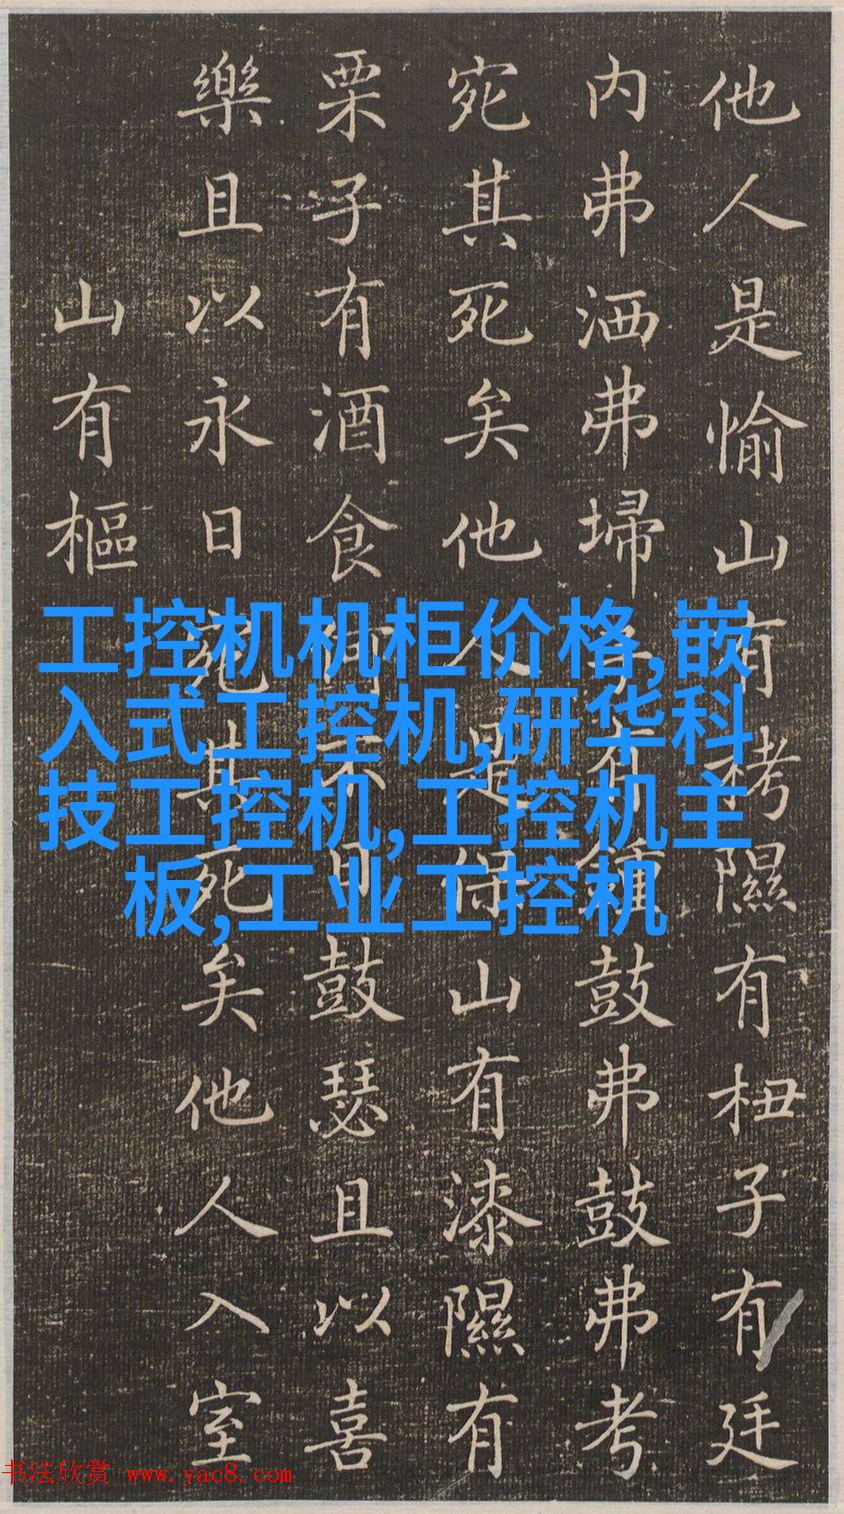 他人是愉山有栲隰有杻子有廷
内弗洒弗埽子有鍾鼓弗鼓弗考
宛其死矣他人是保山有漆隰有
栗子有酒食何不日鼓瑟且以喜
樂且以永日宛其死矣他人入室
山有樞
工控机机柜价格,嵌
入式工控机,研华科
技工控机,工控机主
板,工业工控机
书法欣赏 www.yac8.com